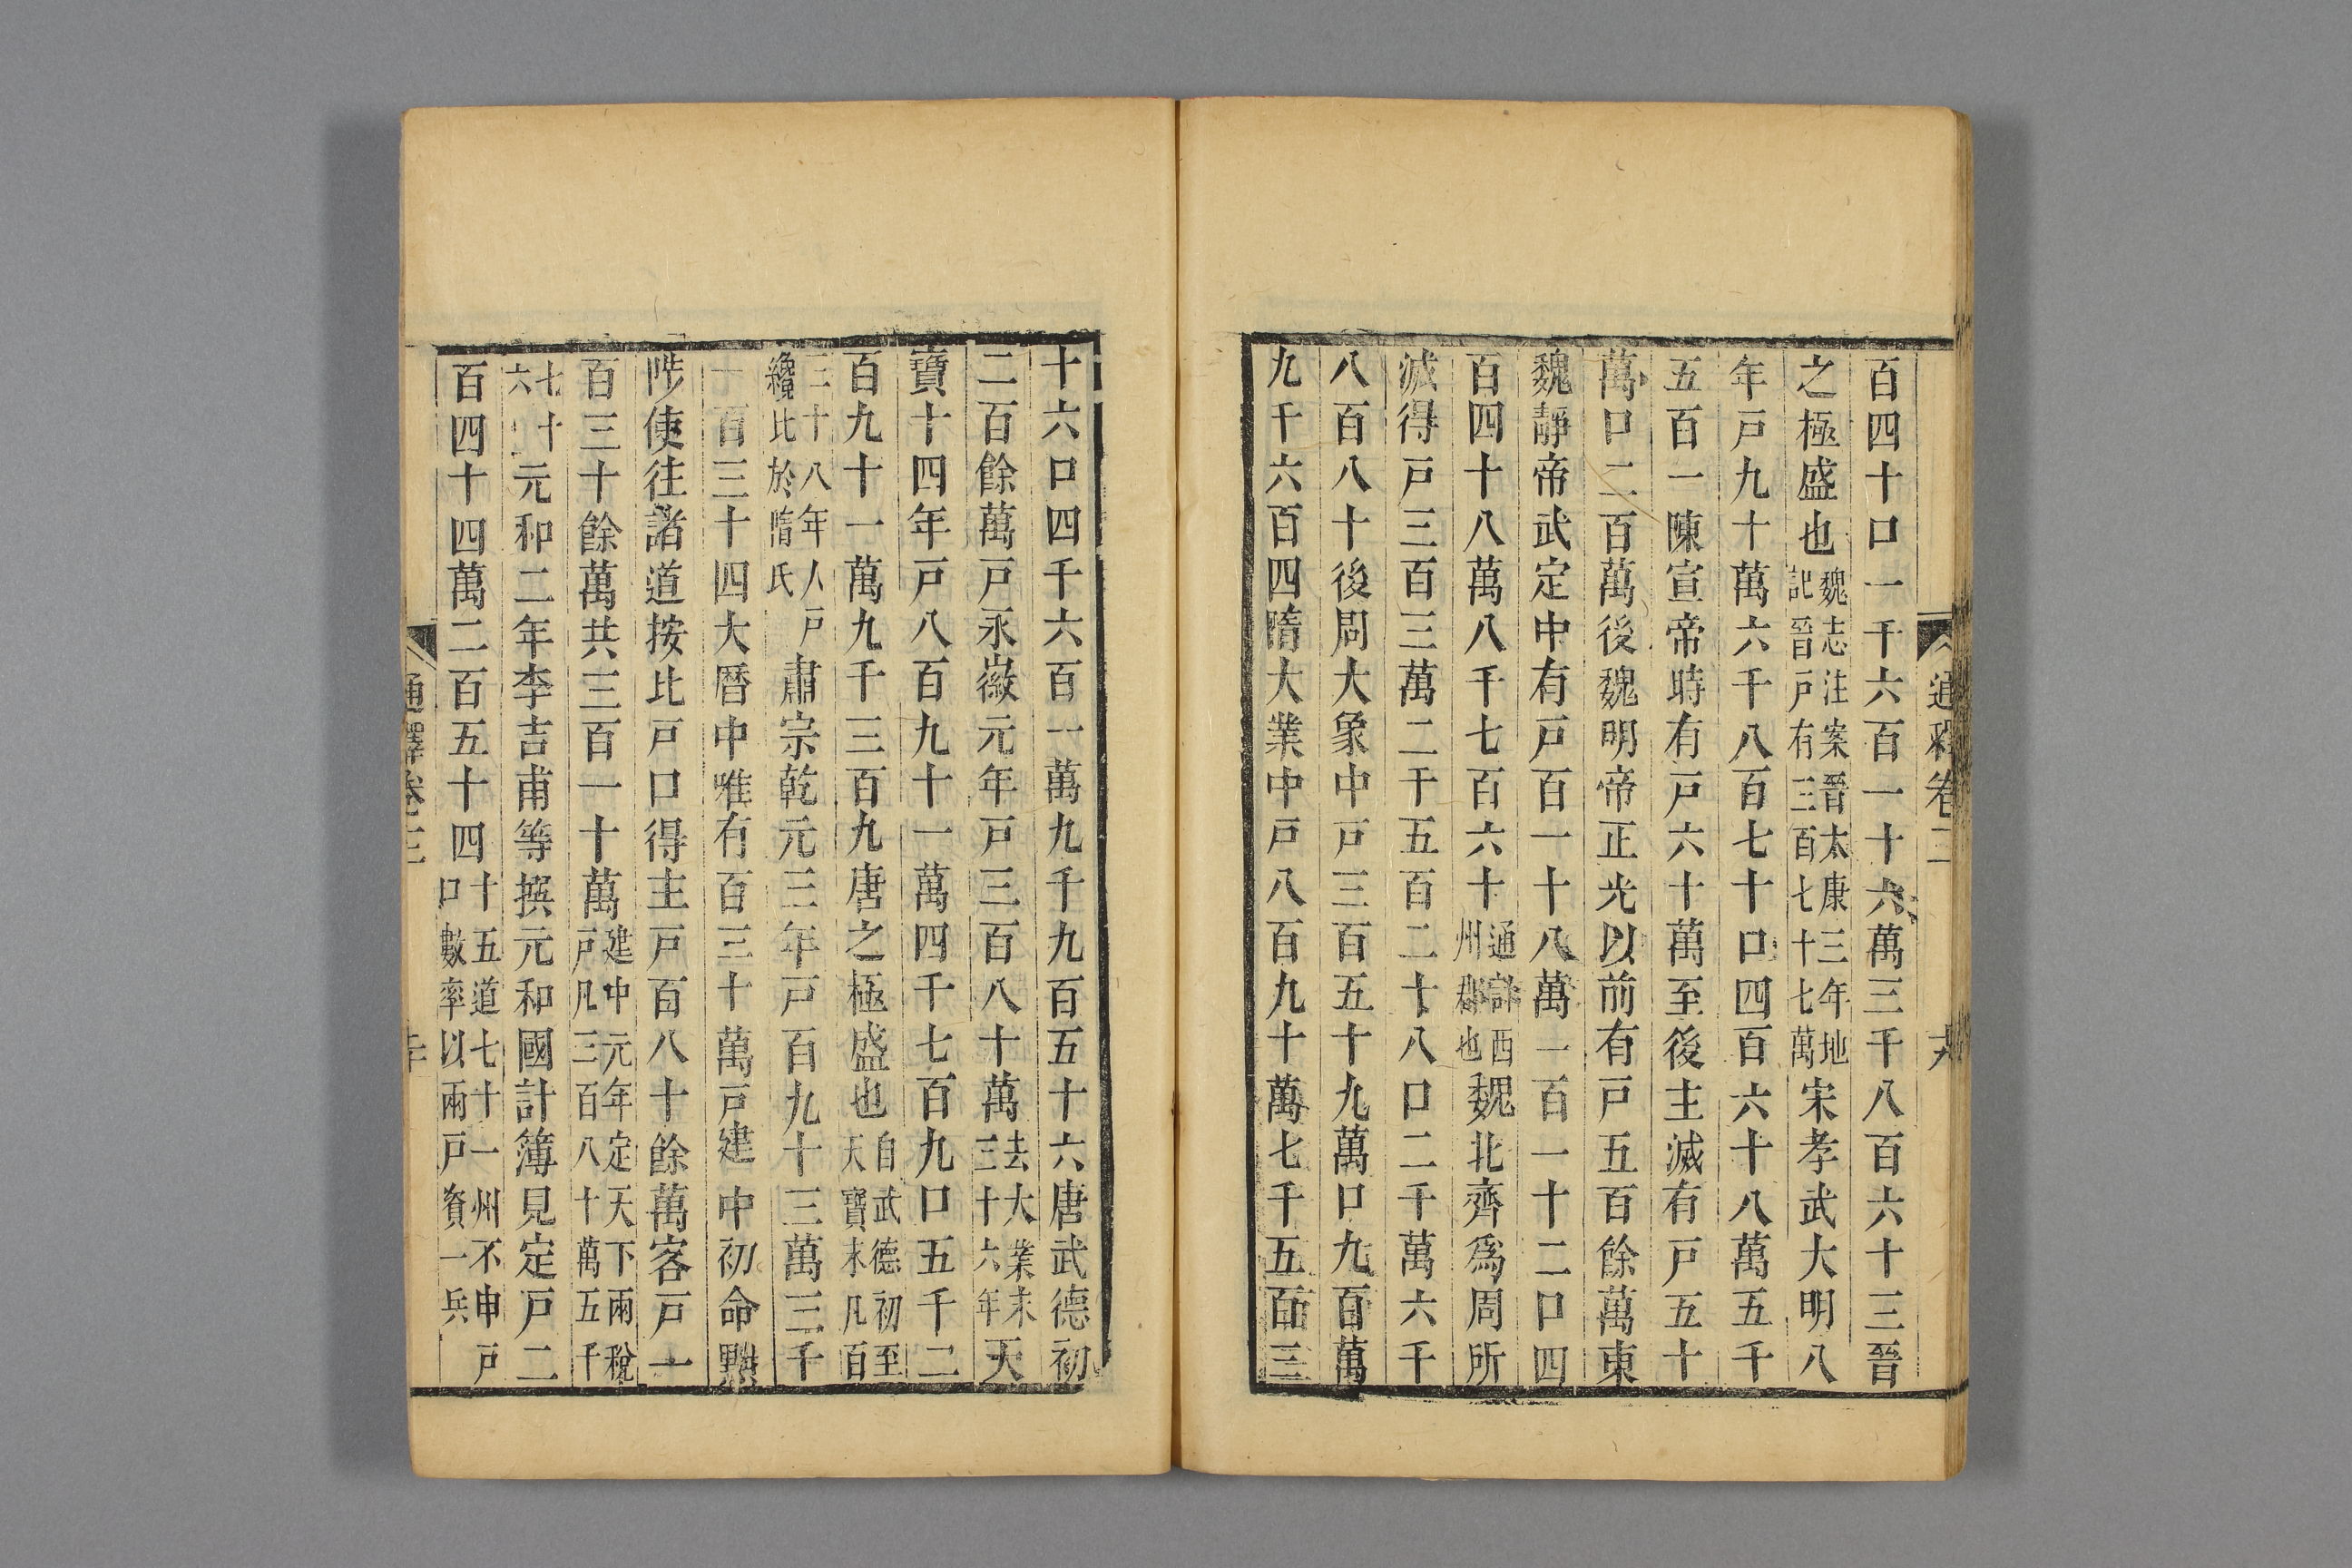 通釋卷三
百四十口一千六百一十六萬三千八百六十三晉
之極盛也魏志注案晉太康三年地記晉戶有三百七十七萬宋孝武大明八
年戶九十萬六千八百七十口四百六十八萬五千
五百一陳宣帝時有戶六十萬至後主滅有戶五十
萬口二百萬後魏明帝正光以前有戶五百餘萬東
魏靜帝武定中有戶百一十八萬一百一十二口四
百四十八萬八千七百六十通計西州郡也魏北齊爲周所
滅得戶三百三萬二千五百二十八口二千萬六千
八百八十後周大象中戶三百五十九萬口九百萬
九千六百四隋大業中戶八百九十萬七千五百三
十六口四千六百一萬九千九百五十六唐武德初
二百餘萬戶永徽元年戶三百八十萬去大業末三十六年天
寶十四年戶八百九十一萬四千七百九口五千二
百九十一萬九千三百九唐之極盛也自武德初至天寶末凡百
三十八年人戶纔比於隋氏肅宗乾元三年戶百九十三萬三千
一百三十四大曆中唯有百三十萬戶建中初命黜
陟使往諸道按比戶口得主戶百八十餘萬客戶一
百三十餘萬共三百一十萬建中元年定天下兩稅戶凡三百八十萬五千
七十六元和二年李吉甫等撰元和國計簿見定戶二
百四十四萬二百五十四十五道七十一州不申戶口數率以兩戶資一兵
通釋卷三